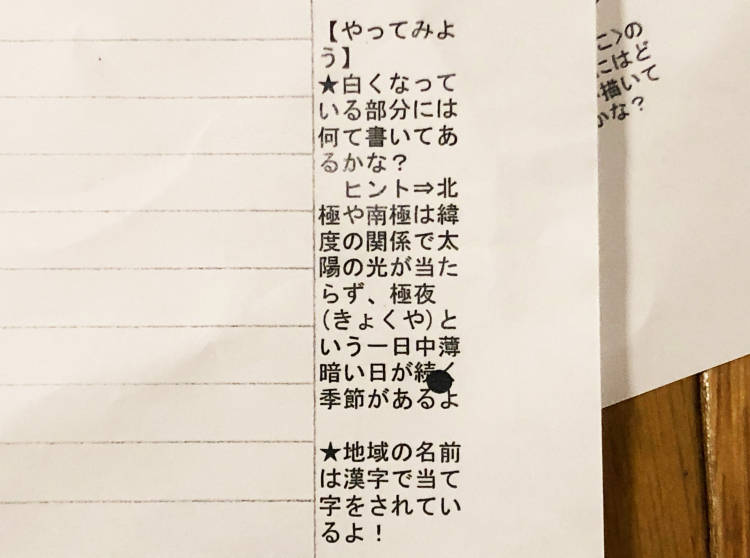 【やってみよ
う】
★白くなって
いる部分には
何て書いてあ
るかな？
　ヒント⇒北
極や南極は緯
度の関係で太
陽の光が当た
らず、極夜
(きょくや)と
いう一日中薄
暗い日が続く
季節があるよ

★地域の名前
は漢字で当て
字をされてい
るよ！
こ>の
にはど
描いて
かな？